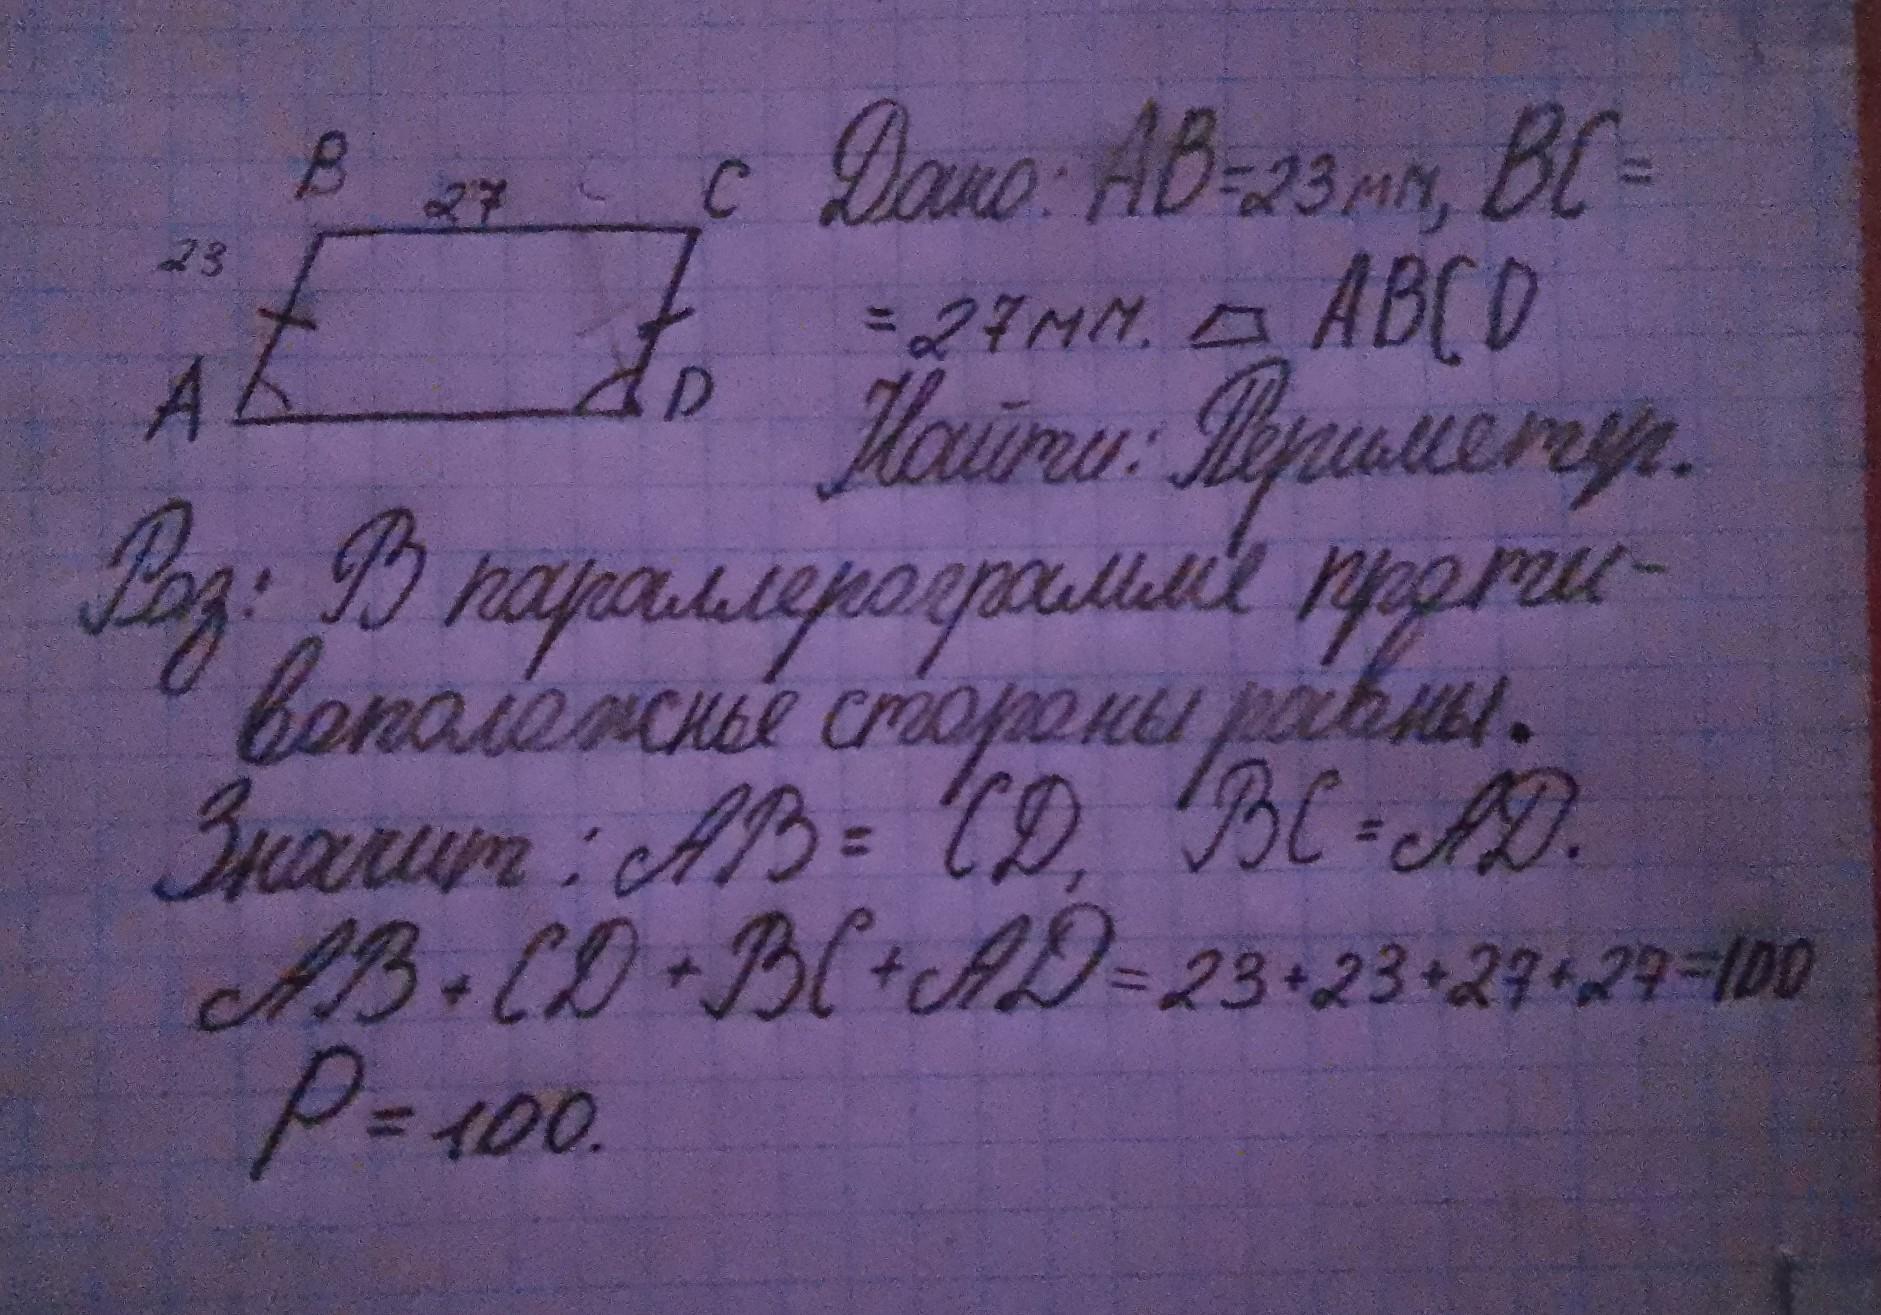 B 27 C Дано: AB=23мм, BC=
23
=27мм. ▱ ABCD
A D
Найти: Периметр.
Роз: В параллерограмме проти-
воположные стороны равны.
Значит: AB = CD, BC = AD.
AB + CD + BC + AD = 23+23+27+27=100
P = 100.